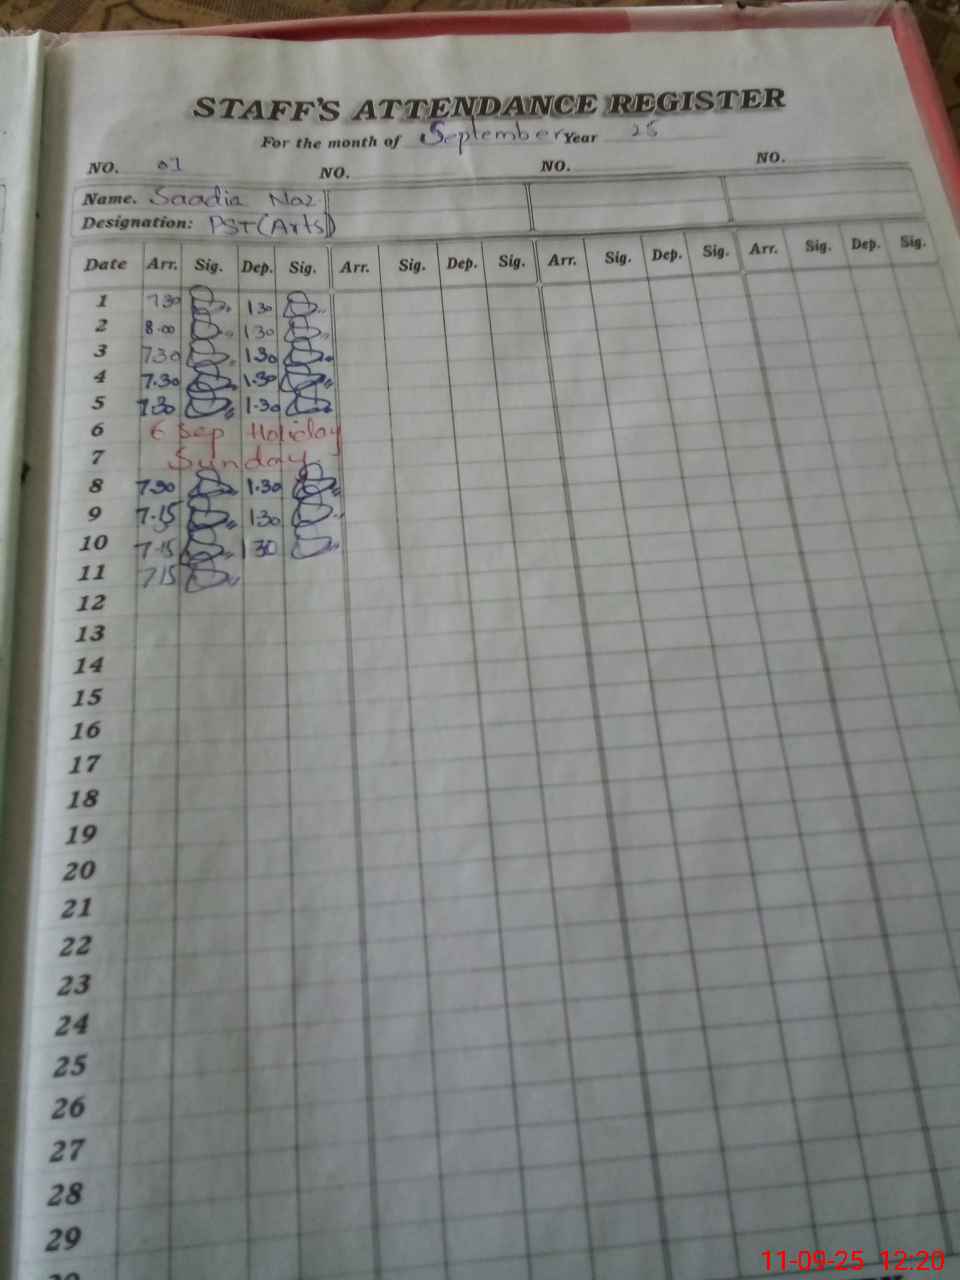 STAFF'S ATTENDANCE REGISTER
For the month of September Year 25
NO. 01 NO. NO. NO.
Name. Saadia Naz
Designation: PST (Arts)
Date Arr. Sig. Dep. Sig. Arr. Sig. Dep. Sig. Arr. Sig. Dep. Sig. Arr. Sig. Dep. Sig.
1 730 130
2 8.00 130
3 730 1.30
4 7.30 1.30
5 7.30 1.30
6 6 Sep Holiday
7 Sunday
8 7.30 1.30
9 7.15 130
10 7.15 130
11 715
12
13
14
15
16
17
18
19
20
21
22
23
24
25
26
27
28
29
11-09-25 12:20